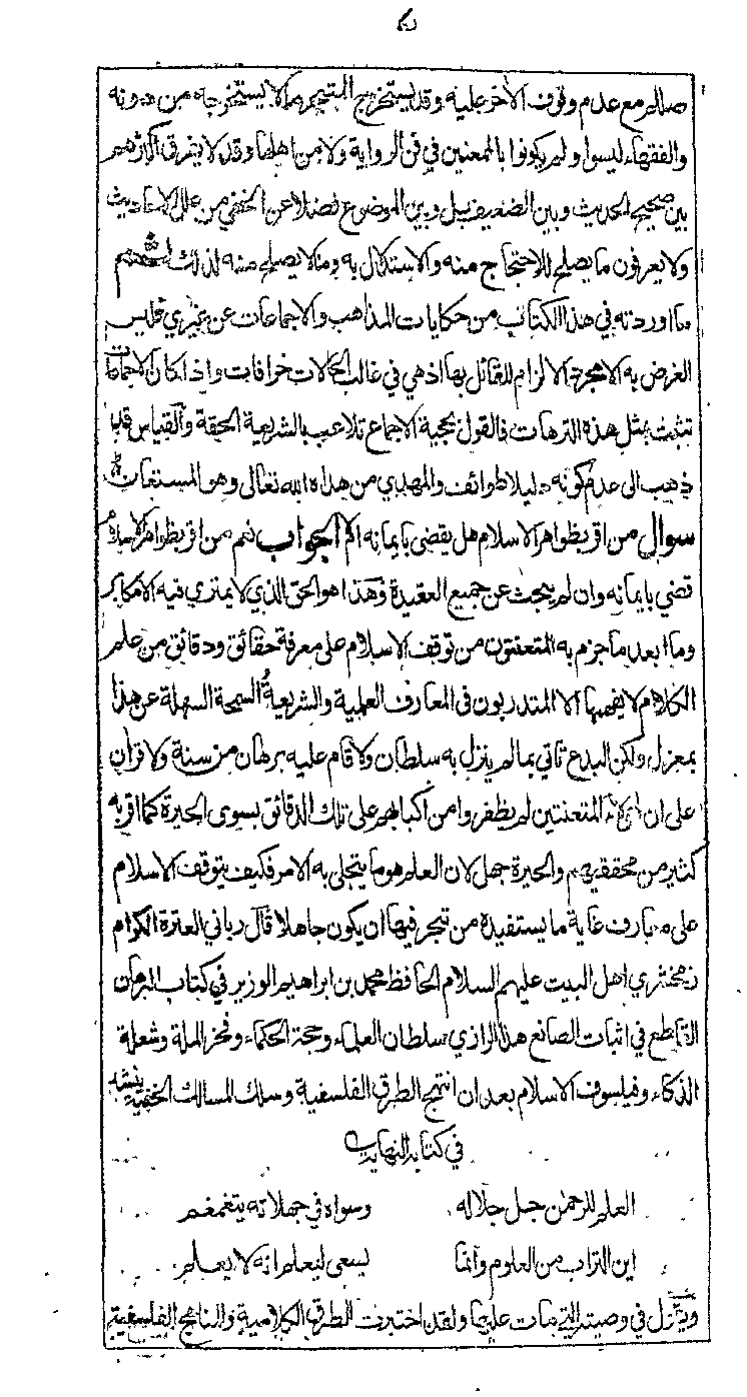 صالح مع عدم وقوف الآخر عليه وقد يستخرج المتبحر ما لا يستخرجه من دونه
والفقهاء ليسوا ولم يكونوا بالممعنين في فن الرواية ولا من اهلها وقد لا يفرق اكثرهم
بين صحيح الحديث وبين الضعيف بل وبين الموضوع فضلا عن الخفي من علل الاحاديث
ولا يعرفون ما يصلح للاحتجاج منه والاستدلال به وما لا يصلح منه لذلك
ما اوردته في هذا الكتاب من حكايات المذاهب والاجماعات عن غيري فليس
الغرض به الا مجرد الالزام للقائل بها اذ هي في غالب الحالات خرافات واذا كان الاجماعات
تثبت بمثل هذه الترهات فالقول بحجية الاجماع تلاعب بالشريعة الحقة والقياس قد
ذهب الى عدم كونه دليلا طوائف والمهدي من هداه الله تعالى وهو المستعان
سوال من اقر بظواهر الاسلام هل يقضى بايمانه الخ الجواب نعم من اقر بظواهر الاسلام
قضي بايمانه وان لم يبحث عن جميع العقيدة وهذا هو الحق الذي لا يمتري فيه الا مكابر
وما ابعد ما جزم به المتعنتون من توقف الاسلام على معرفة حقائق ودقائق من علم
الكلام لا يفهمها الا المتدربون في المعارف العلمية والشريعة السمحة السهلة عن هذا
بمعزل ولكن البدع تاتي بما لم ينزل به سلطان ولا قام عليه برهان من سنة ولا قرآن
على ان هؤلاء المتعنتين لم يظفروا من اكبابهم على تلك الدقائق بسوى الحيرة كما اقر به
كثير من محققيهم والحيرة جهل لان العلم هو ما يتجلى به الامر فكيف يتوقف الاسلام
على معارف غاية ما يستفيده من تبحر فيها ان يكون جاهلا قال رباني العترة الكرام
زمخشري اهل البيت عليهم السلام الحافظ محمد بن ابراهيم الوزير في كتاب البرهان
القاطع في اثبات الصانع هذا الرازي سلطان العلماء وحجة الحكماء وفخر الملة وشعلة
الذكاء وفيلسوف الاسلام بعد ان انتهج الطرق الفلسفية وسلك المسالك الخفية ينشد
في كتابه النهاية
العلم للرحمن جل جلاله وسواه في جهلاته يتغمغم
اين التراب من العلوم وانما يسعى ليعلم انه لا يعلم
في وصيته التي مات عليها ولقد اختبرت الطرق الكلامية والمناهج الفلسفية